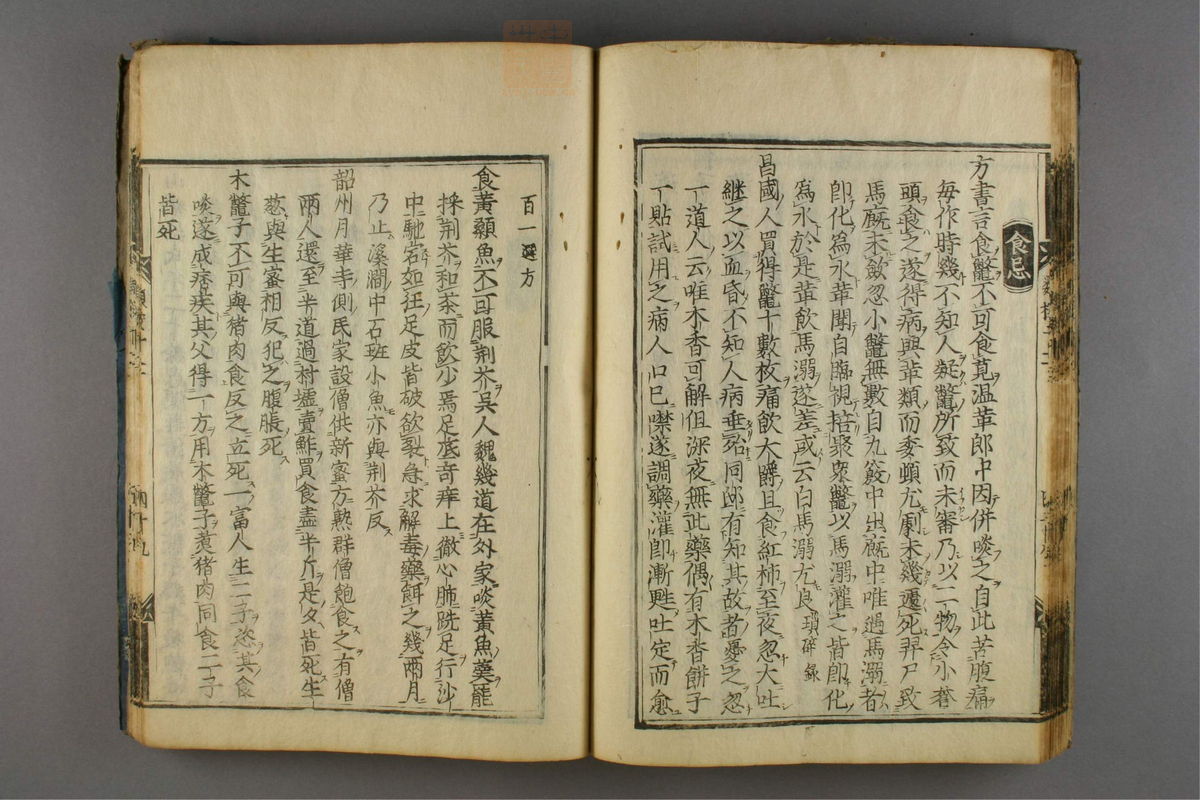 食忌
方書言食鼈不可食莧温革郎中因併啖之自此苦腹痛
毎作時幾不知人疑鼈所致而未審乃以二物令小蒼
頭食之遂得病與革類而委頓尤劇未幾遽死舁尸致
馬廐未斂忽小鼈無數自九竅中出廐中唯遇馬溺者
卽化為水革聞自臨視掊聚衆鼈以馬溺灌之皆卽化
為水於是革飲馬溺遂差或云白馬溺尤良瑣碎錄
昌國人買得鼈十數枚痛飲大爵且食紅柿至夜忽大吐
継之以血昏不知人病垂殆同邸有知其故者憂之忽
一道人云唯木香可解但深夜無此藥偶有木香餅子
一貼試用之病人口已噤遂調藥灌卽漸甦吐定而愈
百一選方
食黄顙魚不可服荆芥呉人魏幾道在外家啖黄魚羹罷
採荆芥和茶而飲少焉足底奇痒上徹心肺跣足行沙
中馳宕如狂足皮皆破欲裂急求解毒藥餌之幾兩月
乃止溪澗中石斑小魚亦與荆芥反
韶州月華寺側民家設僧供新蜜方熟群僧飽食之有僧
兩人還至半道過村墟賣鮓買食盡半斤是夕皆死生
葱與生蜜相反犯之腹脹死
木鼈子不可與猪肉食反之立死一富人生二子恣其食
啖遂成痞疾其父得一方用木鼈子煑猪肉同食二子
皆死